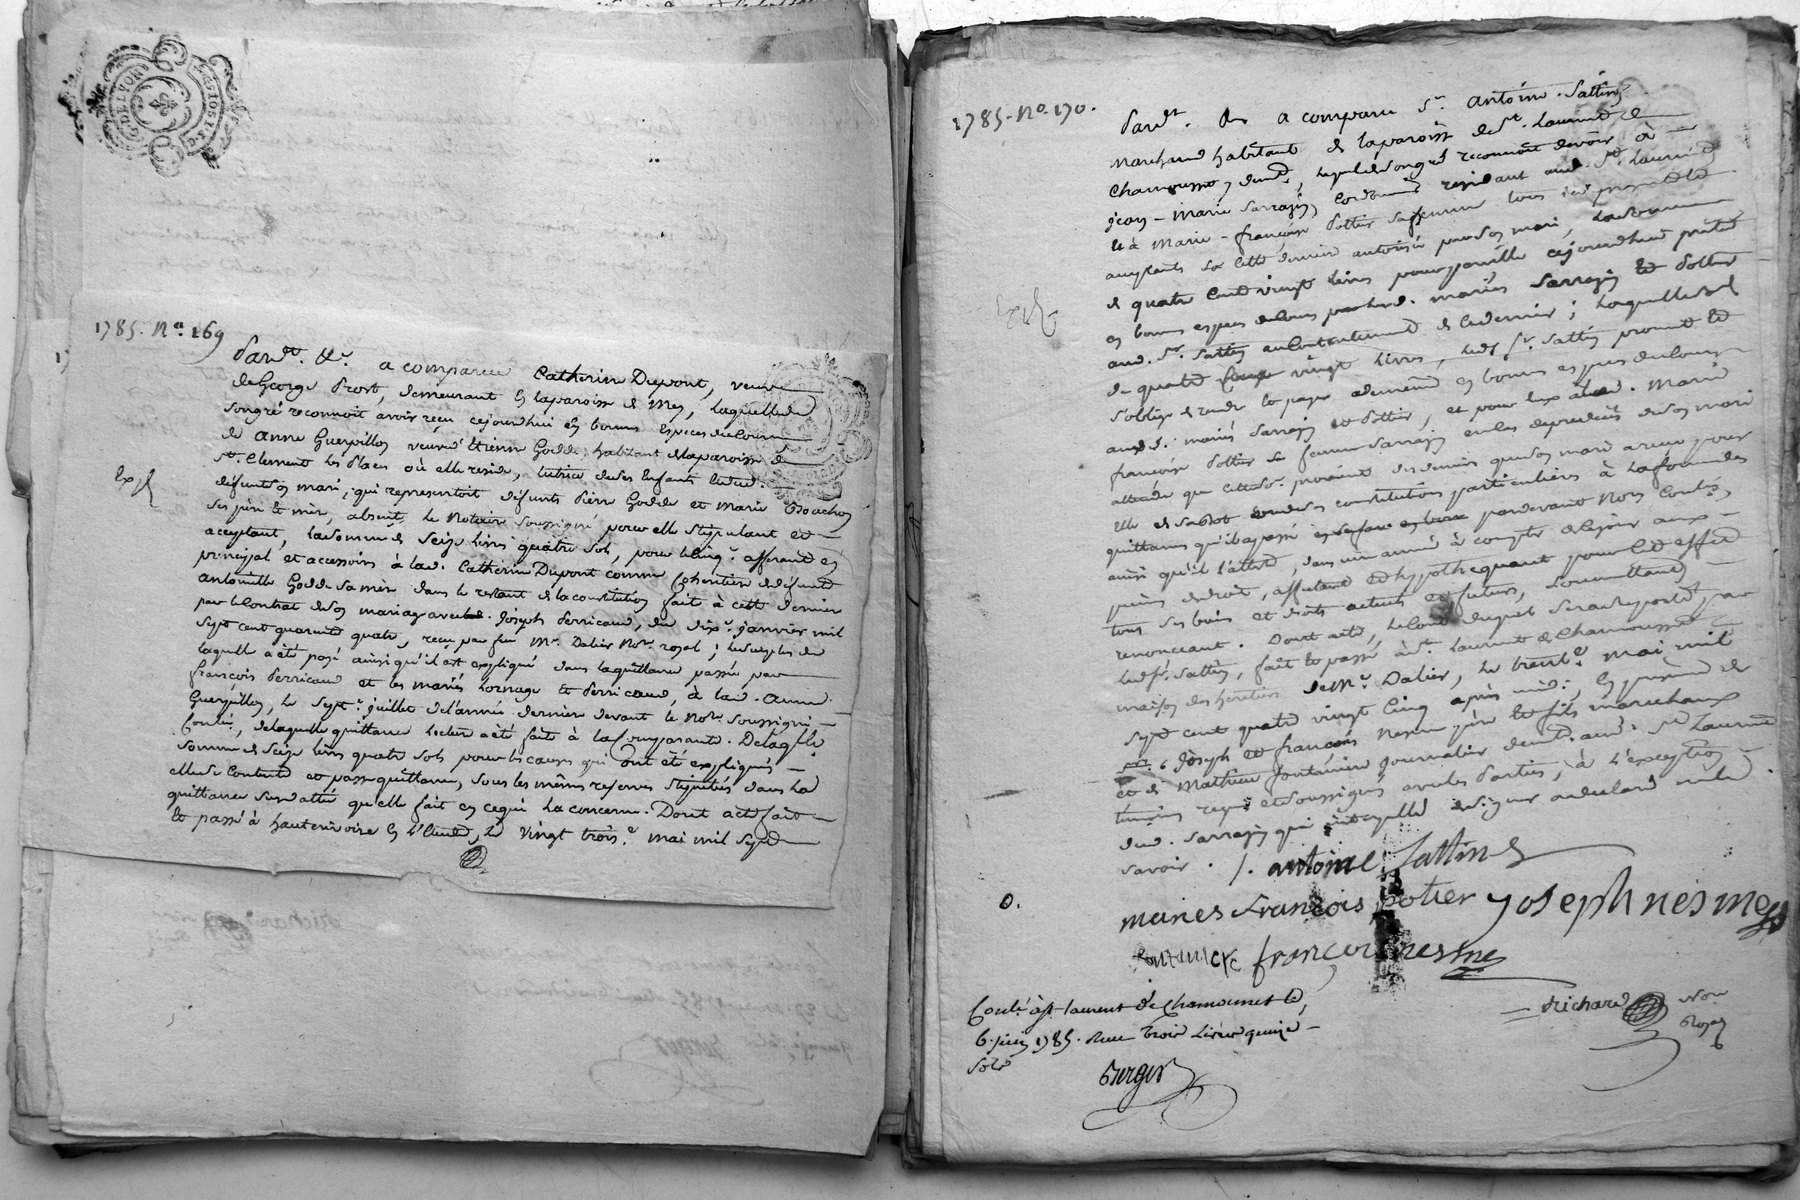 1785. Nº. 169
Pardt. &c. a comparu Catherine Dupont, veuve
de George Prost, demeurant en la paroisse de Mey, laquelle de
son gré reconnoit avoir reçu cejourdhui en bonnes especes de cours
de Anne Guerpillon veuve d'Etienne Godde, habitant de la paroisse de
St. Clement les Places où elle reside, tutrice de ses Enfants dud.
défunt son mari, qui representoit défunts Pierre Godde et Marie
ses père et mère, absente, le Notaire soussigné pour elle stipulant et
acceptant, la somme de seize livres quatre sols, pour le cinq.e afferant en
principal et accessoires à lad. Catherine Dupont comme cohéritiere de défunte
Antoinette Godde sa mère dans le restant de la constitution fait à cette derniere
par le Contrat de son mariage avec led. Joseph Perricaud, du dix.e janvier mil
sept cent quarante quatre, reçu par feu Me. Dalier Nore. royal; le surplus de
laquelle a été payé ainsi qu'il est expliqué dans la quittance passée par
François Perricaud et les mariés Lornage et Perricaud, à lad. Anne
Guerpillon, le sept.e juillet de l'année derniere devant le Nore. soussigné
Conlé, de laquelle quittance lecture a été fait à la comparante. De laq.lle
somme de seize livres quatre sols pour les causes qui ont été expliquées
elle se contente et passe quittance, sous les mêmes reserves stipulées dans la
quittance susdattée qu'elle fait en ce qui la concerne. Dont acte fait
et passé à hauterivoire en l'Etude, le vingt trois.e mai mil sept
Exp
1785. Nº. 170.
Pardt. &c a comparu Sr. Antoine Sattin
Marchand habitant de la paroisse de St. Laurent de
Chamousset y demt., lequel de son gré reconnoit devoir à
Jean-Marie Sarrazin, Cordonnier residant aud. St. Laurent
et à Marie-françoise Pottier sa femme tous ici presents et
acceptants et cette derniere autorisée par son mari, la somme
de quatre cent vingt livres pour pareille cejourdhui prêtée
en bonnes especes de cours par lesd. mariés Sarrazin et Pottier
aud. Sr. Sattin au contentement de ce dernier; laquelle somme
de quatre vingt livres, led. Sr. Sattin promet et
s'oblige de rendre et payer en bonnes especes de cours
auxd. mariés Sarrazin et Pottier, et pour eux à lad. Marie
françoise Pottier sa femme Sarrazin en cas de predecès de son mari
attendu que cette somme provient des deniers que son mari a reçu pour
elle de constitutions particulieres à la forme des
quittances qu'il a passé pardevant Nore. Conlés,
ainsi qu'il l'atteste, dans une année à compter de ce jour aux
peines de droit, affectant et hypothequant pour cet effet
tous ses biens et droits acteuls et futurs, soumettant
renonceant. Dont acte, le cout duquel sera supporté par
led. Sr. Sattin, fait et passé à St. Laurent de Chamousset
maison des heritiers de Me. Dalier, le trent.e mai mil
sept cent quatre vingt cinq après midi, en presence de
Joseph et françois Nesme père et fils marchands
et de Mathieu fontaniere journalier demt. aud. St. Laurent
témoins requis et soussignés avec les Parties, à l'exception
dud. Sarrazin qui interpellé de signer a declaré ne le
savoir. /. antoine Sattin
maries francois potier Joseph nesme
fontaniere francois nesme
o.
Conlé à St. Laurent de Chamousset le
6. juin 1785. Reçu trois Livres quinze
sols
Berger
Richard Nore
Royal